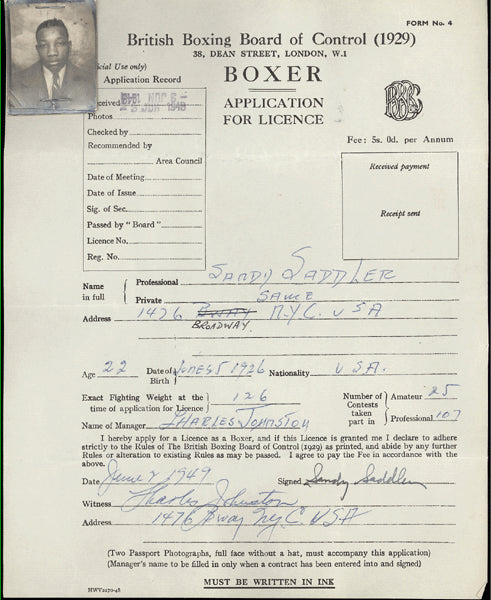 FORM No. 4
British Boxing Board of Control (1929)
38, DEAN STREET, LONDON, W.1
cial Use only)
BOXER
Application Record
APPLICATION
FOR LICENCE
eceived
3 JUN 1949
Photos
Checked by
Recommended by
Area Council
Date of Meeting
Date of Issue
Sig. of Sec.
Passed by "Board"
Licence No.
Reg. No.
Fee: 5s. 0d. per Annum
Received payment
Receipt sent
Name in full
Professional SANDY SADDLER
Private SAME
Address 1476 BWAY N.Y.C. USA
BROADWAY.
Age 22 Date of Birth JUNE 5 1926 Nationality U S A.
Exact Fighting Weight at the time of application for Licence 126
Number of Contests taken part in Amateur 25 Professional 107
Name of Manager CHARLES JOHNSTON
I hereby apply for a Licence as a Boxer, and if this Licence is granted me I declare to adhere
strictly to the Rules of The British Boxing Board of Control (1929) as printed, and abide by any further
Rules or alteration to existing Rules as may be passed. I agree to pay the Fee in accordance with the
above.
Date June 2 1949 Signed Sandy Saddler
Witness Charles Johnston
Address 1476 Bway N.Y.C. USA
(Two Passport Photographs, full face without a hat, must accompany this application)
(Manager's name to be filled in only when a contract has been entered into and signed)
MUST BE WRITTEN IN INK